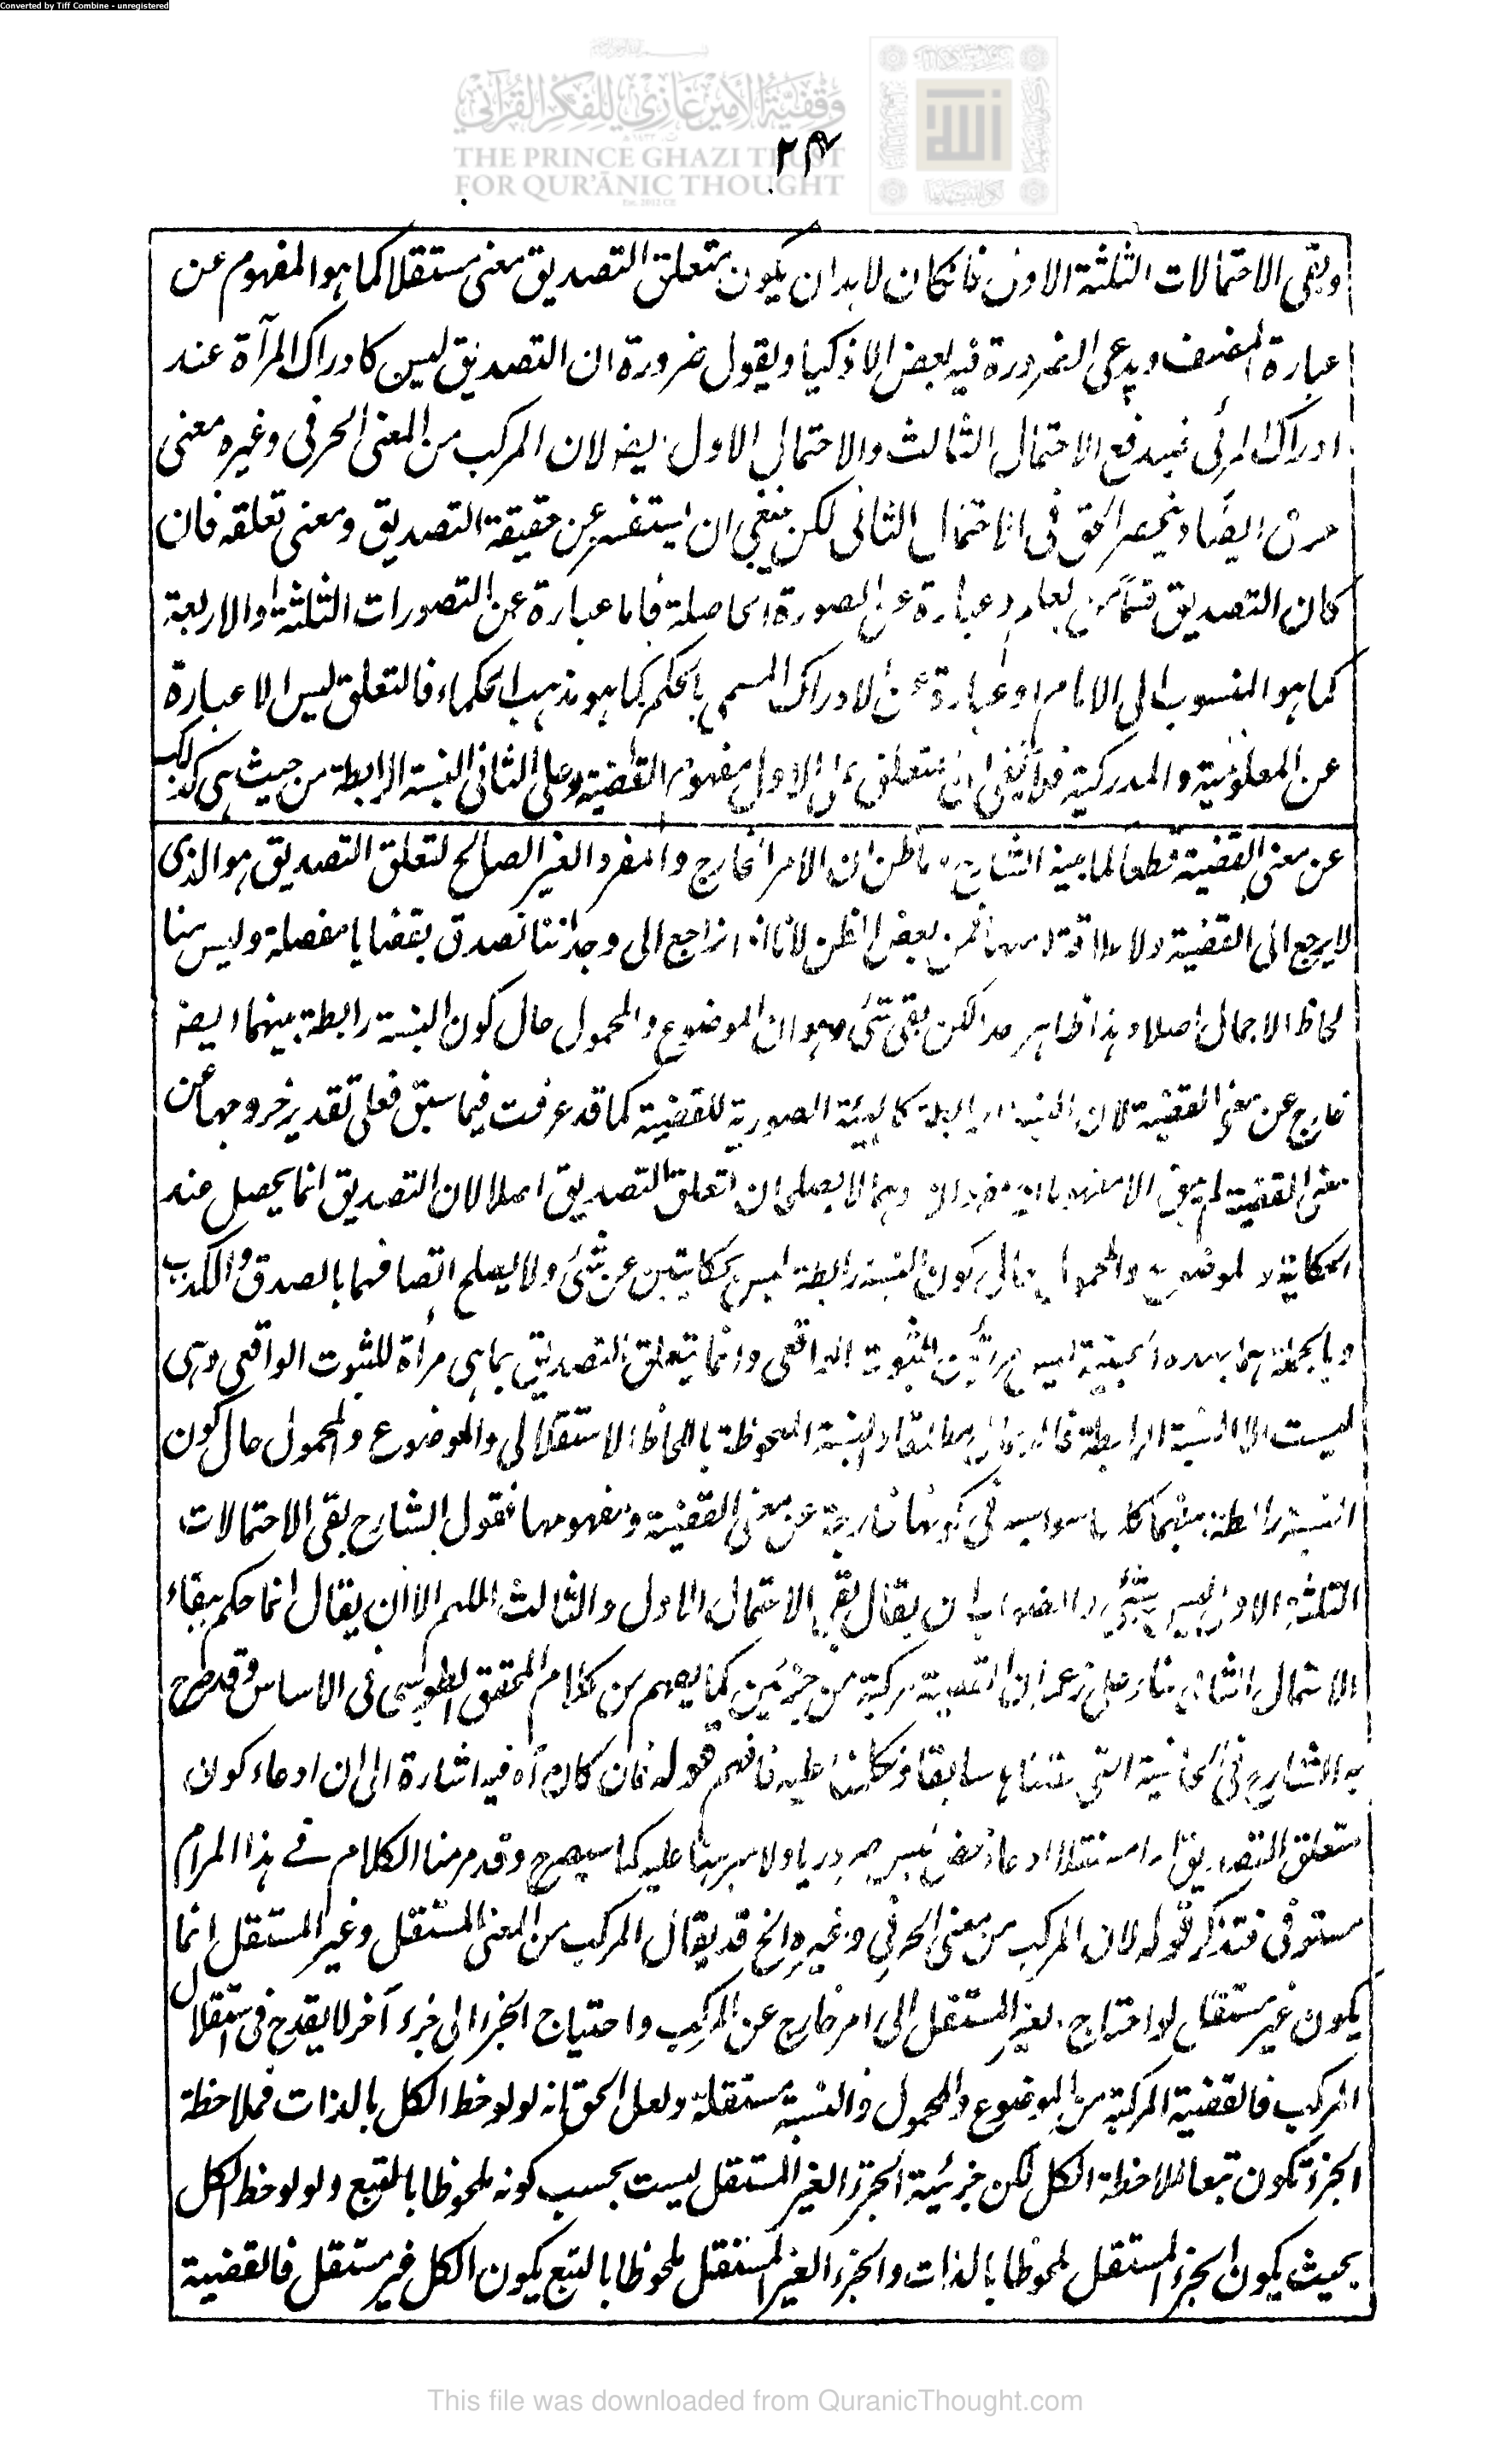 Converted by Tiff Combine - unregistered
وقفية الأمير غازي للفكر القرآني
THE PRINCE GHAZI TRUST
FOR QUR'ĀNIC THOUGHT
الله
وبقى الاحتمالات الثلثة الاول فانكان لابد ان يكون متعلق التصديق معنى مستقلا كما هو المفهوم عن
عبارة المصنف ويدعى الضرورة فيه بعض الاذكيا ويقول ضرورة ان التصديق ليس كادراك المرآة عند
ادراك المرئى فيندفع الاحتمال الثالث والاحتمال الاول ايضا لان المركب من المعنى الحرفى وغيره معنى
حرفى ايضا وينحصر الحق فى الاحتمال الثانى لكن ينبغى ان يستفسر عن حقيقة التصديق ومعنى تعلقه فان
كان التصديق قسما من العلم وعبارة عن الصورة الحاصلة فاما عبارة عن التصورات الثلثة او الاربعة
كما هو المنسوب الى الامام او عبارة عن الادراك المسمى بالحكم كما هو مذهب الحكماء فالتعلق ليس الا عبارة
عن المعلومية والمدركية فلا يخفى ان متعلق على الاول مفهوم القضية وعلى الثانى النسبة الرابطة من حيث هى كذلك
عن معنى القضية قطعا لما بينه الشارح وما ظن ان الامر الخارج والمفرد الغير الصالح لتعلق التصديق هو الذى
لا يرجع الى القضية ولا علاقة له بها فمن بعض الظن لانا اذا نراجع الى وجداننا نصدق بقضايا مفصلة وليس هنا
لحاظ الاجمال اصلا وهذا ظاهر جدا لكن بقى شئ وهو ان الموضوع والمحمول حال كون النسبة رابطة بينهما ايضا
خارج عن معنى القضية لان النسبة الرابطة كالهيئة الصورية للقضية كما قد عرفت فيما سبق فعلى تقدير خروجها عن
معنى القضية لم يبق الا وهما لا يصلحان لتعلق التصديق اصلا لان التصديق انما يحصل عند
الحكاية والموضوع والمحمول حال كون النسبة رابطة ليس بحكايتين عن شئ ولا يصلح اتصافهما بالصدق والكذب
وبالجملة هما بهذه الحيثية ليسا مرأتين للثبوت الواقعى وانما يتعلق التصديق بما هى مرأة للثبوت الواقعى وهى
ليست الا النسبة الرابطة مطلقا والنسبة الملحوظة باللحاظ الاستقلالى والموضوع والمحمول حال كون
النسبة رابطة بينهما كلها سواسية فى كونها خارجة عن معنى القضية ومفهومها فقول الشارح بقى الاحتمالات
الثلثة الاول ليس بشئ والصواب ان يقال بقى الاحتمال الاول والثالث اللهم الا ان يقال انما حكم ببقاء
الاحتمال الثانى بناء على زعم ان القضية مركبة من جزئين كما يفهم من كلام المحقق الطوسى فى الاساس وقد صرح
به الشارح فى الحاشية التى نقلناها سابقا وتكلمنا عليه فافهم قوله فان كان آه فيه اشارة الى ان ادعاء كون
متعلق التصديق امرا مستقلا ادعاء محض ليس ضروريا ولا مبرهنا عليه كما سيصرح وقد مر منا الكلام فى هذا المرام
مستوفى فتذكر قوله لان المركب من معنى الحرفى وغيره الخ قد يقال المركب من المعنى المستقل وغير المستقل انما
يكون غير مستقل لو احتاج الغير المستقل الى امر خارج عن المركب واحتياج الجزء الى جزء آخر لا يقدح فى استقلال
المركب فالقضية المركبة من الموضوع والمحمول والنسبة مستقلة ولعل الحق انه لو لوحظ الكل بالذات فملاحظة
الجزء تكون تبعا لملاحظة الكل لكن جزئية الجزء الغير المستقل ليست بحسب كونه ملحوظا بالتبع ولو لوحظ الكل
بحيث يكون الجزء المستقل ملحوظا بالذات والجزء الغير المستقل ملحوظا بالتبع يكون الكل غير مستقل فالقضية
This file was downloaded from QuranicThought.com